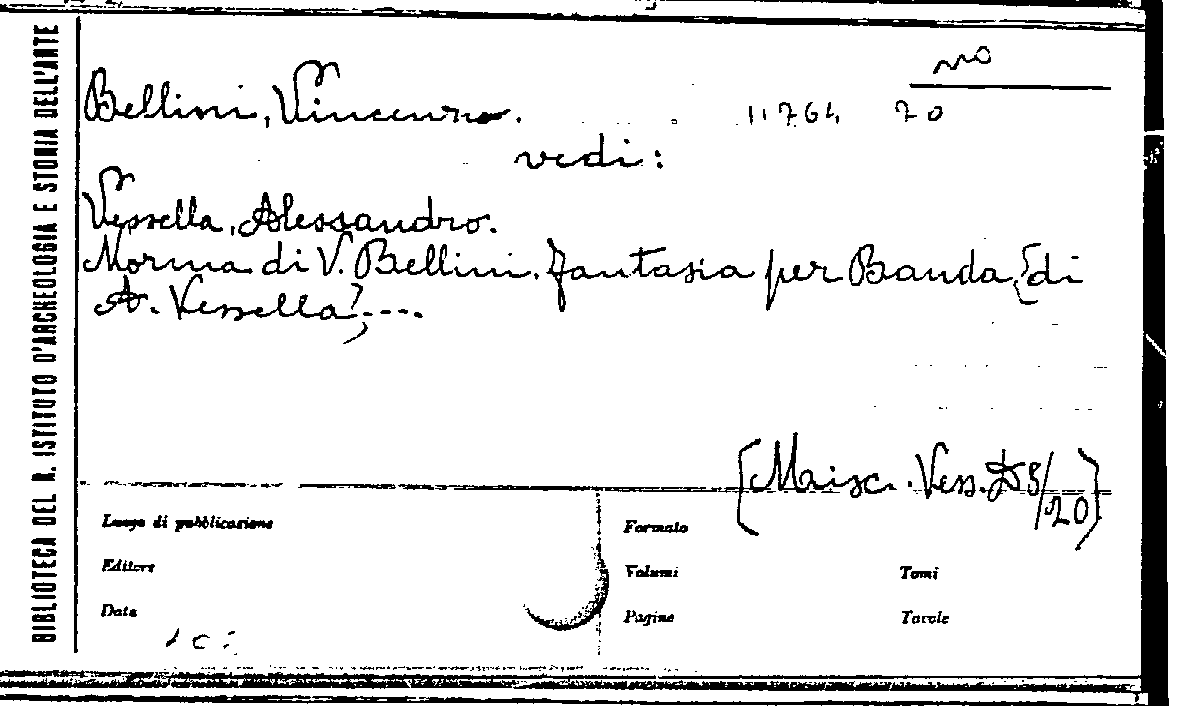 BIBLIOTECA DEL R. ISTITUTO D'ARCHEOLOGIA E STORIA DELL'ARTE
Bellini, Vincenzo.
11764 20
vedi:
Vessella, Alessandro.
Norma di V. Bellini. Fantasia per Banda, [di
A. Vessella],....
Luogo di pubblicazione
Formato
Editore
Volumi
Tomi
Data
Pagine
Tavole